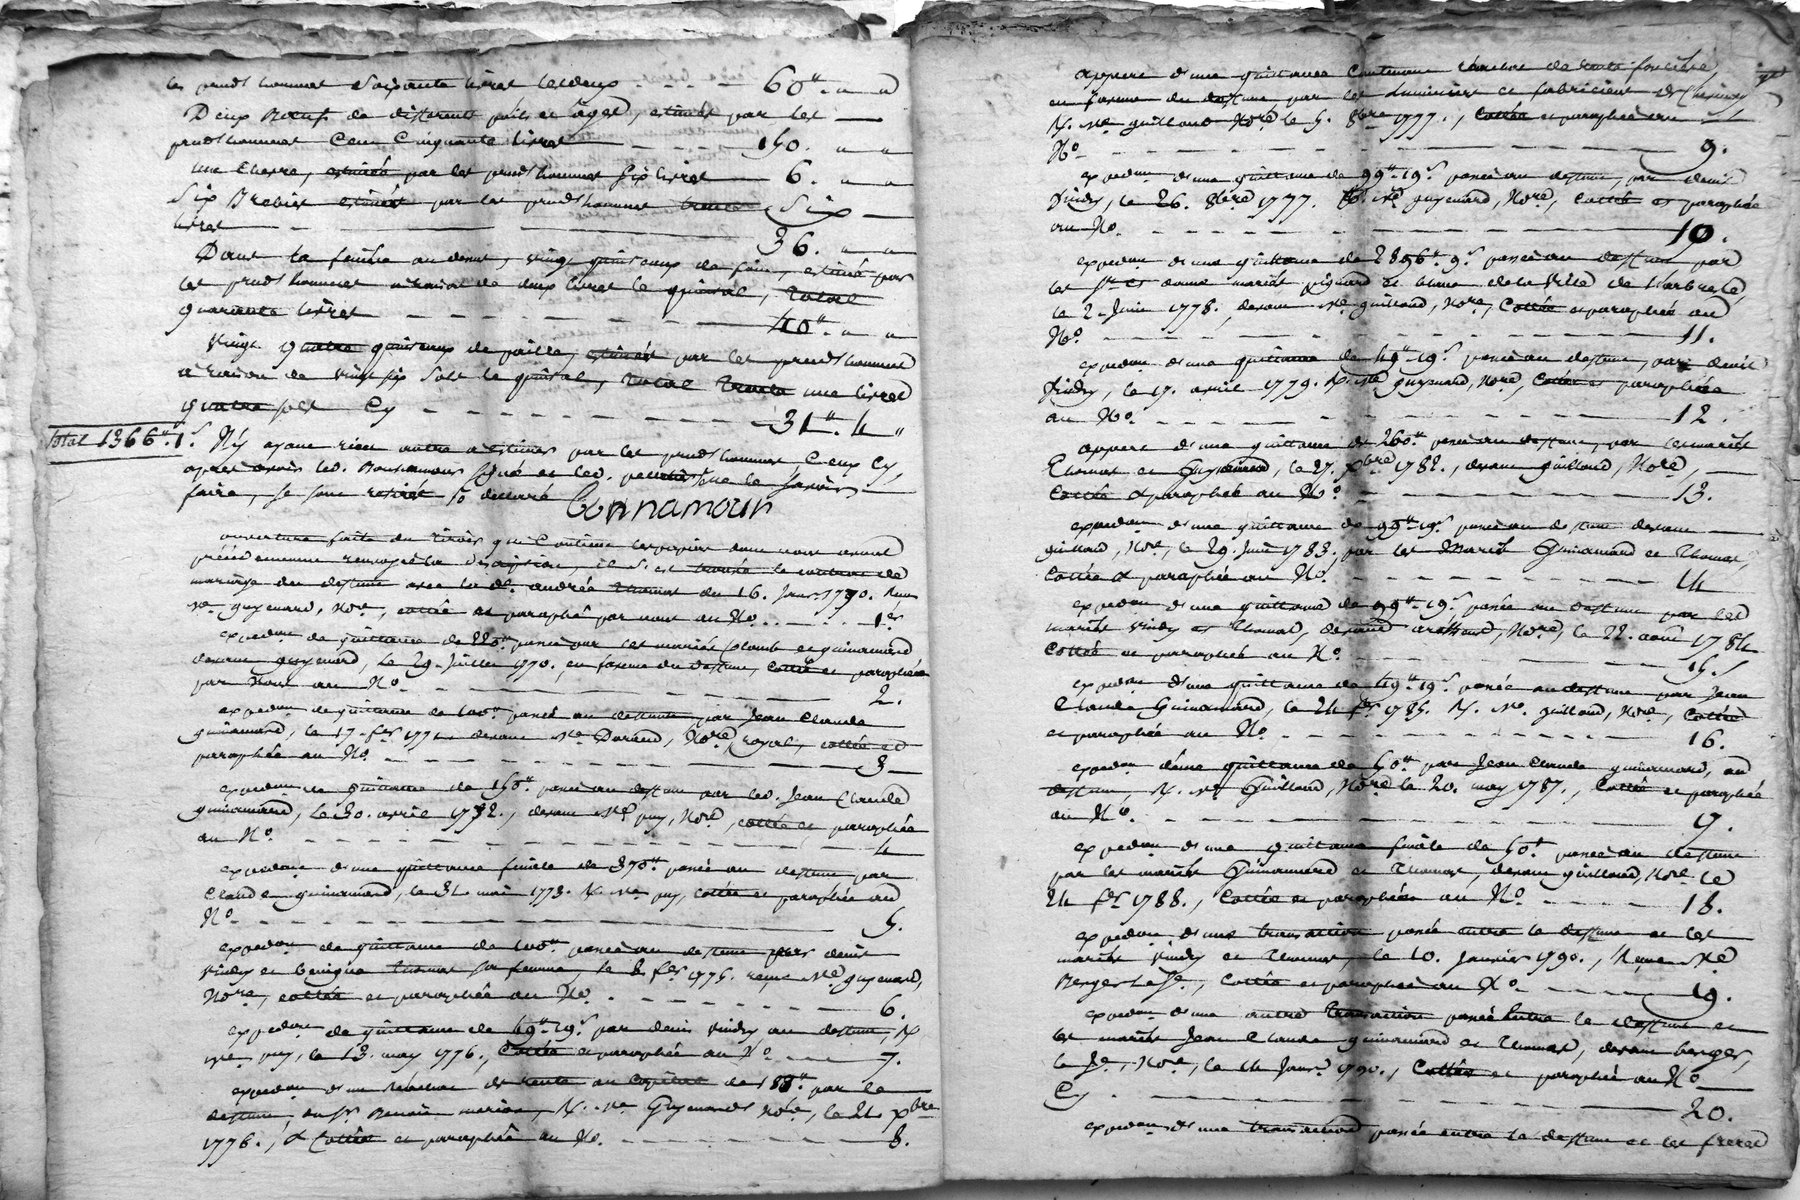 les prudshommes Soixante livres les deux - - - - 60ˡᵗ. " "
Deux Bœufs de differents poils et âges, estimés par les
prudshommes Cent Cinquante livres - - - - 150. " "
une Chevre, estimée par les prudshommes Six livres 6. " "
Six Brebis estimées par les prudshommes trente Six
livres - - - - 36. " "
Dans la feniere au dessus, vingt quintaux de foin, estimés par
les prudshommes a raison de deux livres le quintal, total
quarante livres - - - - 40ˡᵗ. " "
Vingt quatre quintaux de paille, estimés par les prudshommes
a raison de vingt six sols le quintal, total trente une livres
quatre sols Cy - - - - 31ˡᵗ. 4 "
total 1366ˡᵗ. 1ˢ.
N'y ayant rien autre a estimer par les prudshommes Ceux Cy,
après avoir led. Bonnamour signé et led. pour ne le savoir
faire, se sont retirés so declaré Bonnamour
ouverture faite du tiroir qui Contient les papiers dont nous avons
précédemment renvoyé la description, il s'est trouvé le contrat de
mariage du deffunt avec lad. andrée Thomas du 16. Janv. 1770. Reçu
Mᵉ guyenard, Noʳᵉ, cottée et paraphée par nous au Nº. - - - - 1ᵉʳ
expedon de quittance de 220ˡᵗ passé par les mariés Colomb et guinamard
devant guyenard, le 29. Juillet 1770. en faveur du deffunt, cottée et paraphée
par Nous au Nº - - - - 2.
expedon de quittance de 100ˡᵗ passée au deffunt par Jean Claude
guinamard, le 17. fᵉʳ 1771 devant Mᵉ Durand, Noʳᵉ royal, cottée et
paraphée au Nº. - - - - 3
expedon de quittance de 150ˡᵗ passée au deffunt par led. Jean Claude
guinamard, le 30. avril 1772., devant Mᵉ puy, Noʳᵉ, cottée et paraphée
au Nº. - - - - 4
expedon d'une quittance finale de 370ˡᵗ passée au deffunt par
Claude guinamard, le 31 mai 1773. R. Mᵉ puy, cottée et paraphée au
Nº - - - - 5.
expedon de quittance de 100ˡᵗ passée au deffunt par denis
vindry et benigne Thomas sa femme, le 8 fᵉʳ 1775. reçue Mᵉ guyenard,
Noʳᵉ, cottée et paraphée au Nº. - - - - 6.
expedon de quittance de 49ˡᵗ. 19ˢ. par denis vindry au deffunt, R
Mᵉ puy, le 13. may 1776., Cottée et paraphée au Nº - - - - 7.
expedon d'un rachat de rente au Capital de 188ˡᵗ. par le
deffunt, au Sʳ. Benoit marion, R. Mᵉ Guyenard Noʳᵉ, le 21 xbre
1776., & Cottée et paraphée au Nº. - - - - 8.
appert d'une quittance Contenant rachat de rente foncière,
en faveur du deffunt par les Luminiers et fabriciens de
R. Mᵉ guilloud Noʳᵉ le 5. 8bre 1777., Cottée et paraphée au
Nº - - - - 9.
expedon d'une quittance de 99ˡᵗ. 19ˢ. passée au deffunt, par denis
Vindry, le 26. 8bre 1777. R. Mᵉ guyenard, Noʳᵉ, Cottée et paraphée
au Nº. - - - - 10.
expedon d'une quittance de 2896ˡᵗ. 9ˢ passée au deffunt par
les Sʳ et dame mariés pignard et blanc de la Ville de l'arbresle,
le 2. Juin 1778., devant Mᵉ guilloud, Noʳᵉ, Cottée et paraphée au
Nº - - - - 11.
expedon d'une quittance de 49ˡᵗ. 19ˢ. passée au deffunt, par denis
Vindry, le 17. avril 1779. R. Mᵉ guyenard, Noʳᵉ, Cottée et paraphée
au Nº. - - - - 12.
appert d'une quittance de 260ˡᵗ. passée au deffunt, par les mariés
Thomas et Guyenard, le 27. xbre 1782., devant guilloud, Noʳᵉ,
Cottée & paraphée au Nº. - - - - 13.
expedon d'une quittance de 99ˡᵗ. 19ˢ. passée au deffunt devant
guilloud, Noʳᵉ, le 29. Juin 1783., par les Mariés Guinamard et Thomas,
Cottée & paraphée au Nº. - - - - 14
expedon d'une quittance de 99ˡᵗ. 19ˢ. passée au deffunt par les
mariés vindry et Thomas, devant Noʳᵉ, le 22. août 1784
Cottée et paraphée au Nº. - - - - 15.
expedon d'une quittance de 49ˡᵗ. 19ˢ. passée au deffunt par Jean
Claude Guinamard, le 24 fᵉʳ 1785. R. Mᵉ. guilloud, Noʳᵉ, Cottée
et paraphée au Nº - - - - 16.
expedon d'une quittance de 50ˡᵗ par Jean Claude guinamard, au
deffunt, R. Mᵉ Guilloud, Noʳᵉ le 20. may 1787., Cottée et paraphée
au Nº. - - - - 17.
expedon d'une quittance finale de 50ˡᵗ passée au deffunt
par les mariés Guinamard et Thomas, devant guilloud, Noʳᵉ le
24 fᵉʳ 1788., Cottée et paraphée au Nº. - - - - 18.
expedon d'une transaction passée entre le deffunt et les
mariés vindry et Thomas, le 10. Janvier 1790., Reçue Mᵉ
Berger le Jᵉ, Cottée et paraphée au Nº. - - - - 19.
expedon d'une autre transaction passée entre le deffunt et
les mariés Jean Claude guinamard et Thomas, devant berger,
le Jᵉ, Noʳᵉ, le 14 Janvʳ 1790., Cottée et paraphée au Nº
Cy - - - - 20.
expedon d'une transaction passée entre le deffunt et les freres